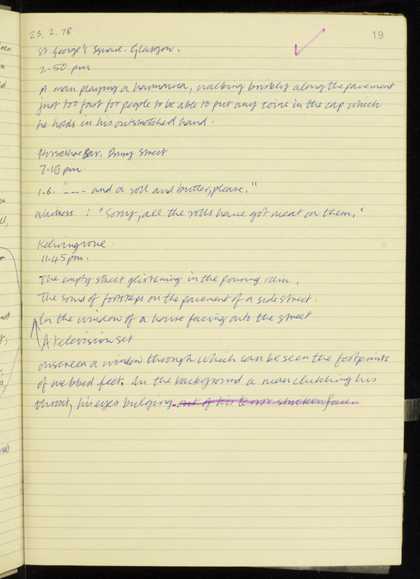 25. 2. 78
19
St George's Square. Glasgow.
2.50 pm
A man playing a harmonica, walking briskly along the pavement
just too fast for people to be able to put any coins in the cap which
he holds in his outstretched hand.
Horseshoe Bar. Drury Street
7.10 pm
I.B. "---- and a roll and butter, please."
Waitress : "Sorry, all the rolls have got meat on them."
Kelvingrove.
11.45 pm.
The empty street glistening in the pouring rain.
The sound of footsteps on the pavement of a side street.
In the window of a house facing onto the street
A television set
onscreen a window through which can be seen the footprints
of webbed feet. In the background a man clutching his
throat, his eyes bulging out of his terror stricken face.